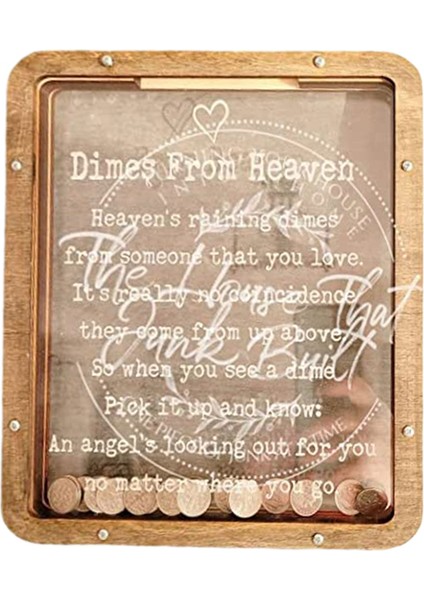 Dimes From Heaven
Heaven's raining dimes
from someone that you love.
It's really no coincidence
they come from up above.
So when you see a dime
Pick it up and know:
An angel's looking out for you
no matter where you go.
The House That
Junk Built
HOUSE
TIME